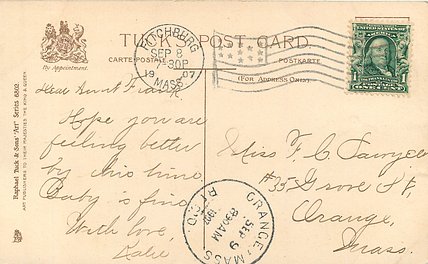 TUCK'S POST CARD.
CARTE POSTALE
POSTKARTE
(FOR ADDRESS ONLY)
By Appointment.
FITCHBURG
SEP 8
-30P
1907
MASS.
ONE CENT
Dear Aunt Frank
Hope you are
feeling better
by this time.
Baby is fine.
With love,
Miss F. C. Sawyer
#35 Grove St,
Orange,
Mass.
ORANGE, MASS
SEP 9
830AM
1907
REC'D.
Raphael Tuck & Sons' "Art" Series 6802
ART PUBLISHERS TO THEIR MAJESTIES THE KING & QUEEN